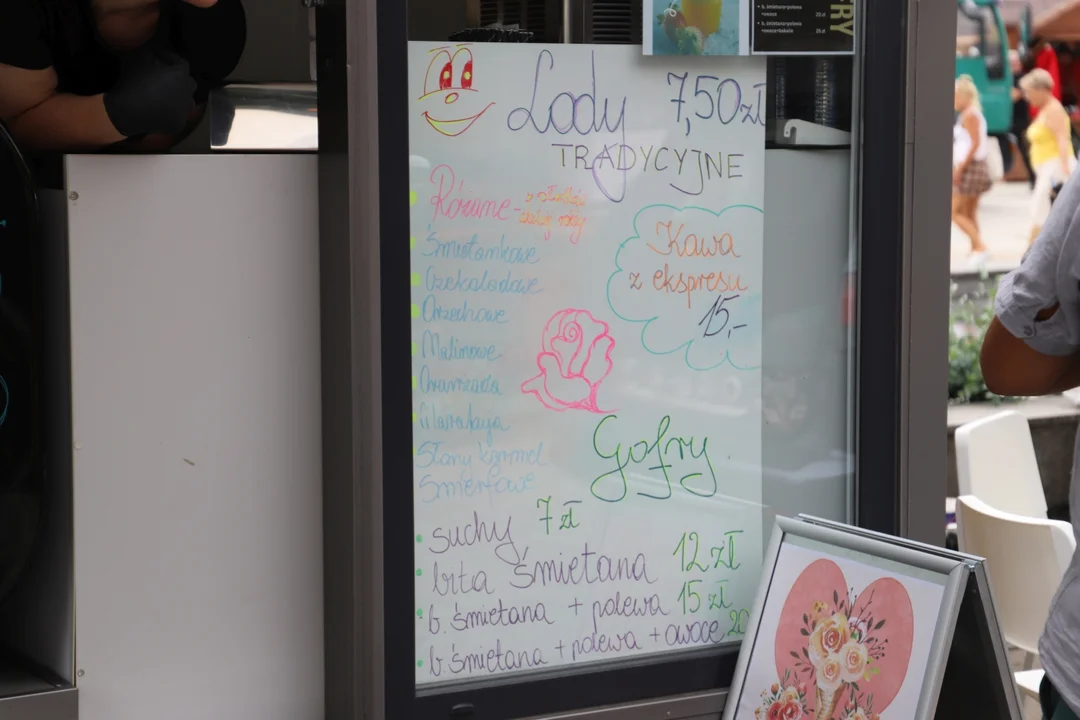 Lody 7,50 zł
TRADYCYJNE
Różane - z płatków
dzikiej róży
Śmietankowe
Czekoladowe
Orzechowe
Malinowe
Marakuja
Słony karmel
Smerfowe
Kawa
z ekspresu
15,-
Gofry
suchy 7 zł
bita śmietana 12 zł
b. śmietana + polewa 15 zł
b. śmietana + polewa + owoce 20